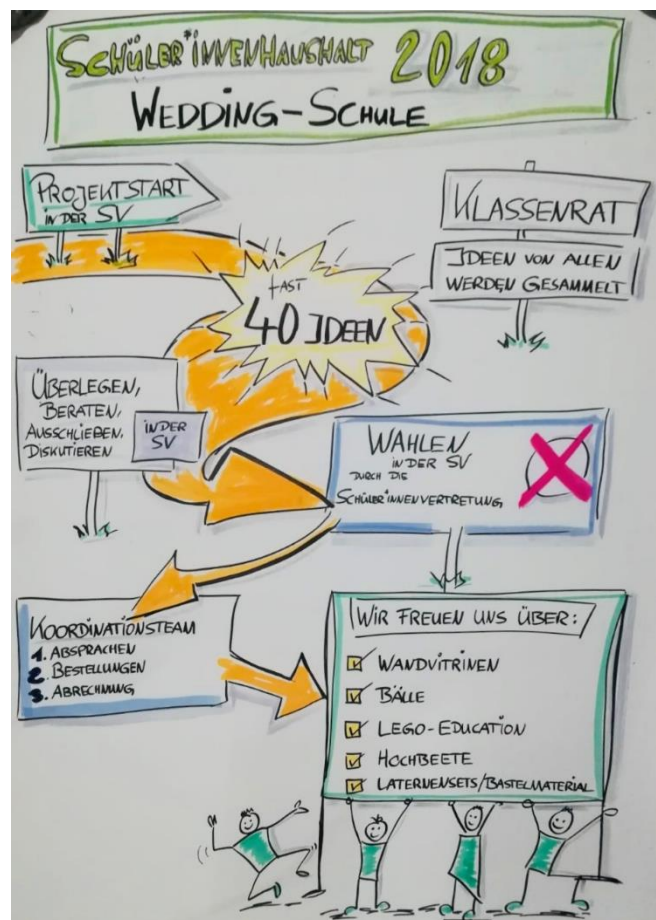 SCHÜLER*INNENHAUSHALT 2018
WEDDING-SCHULE
PROJEKTSTART
IN DER SV
KLASSENRAT
IDEEN VON ALLEN
WERDEN GESAMMELT
FAST
40 IDEEN
ÜBERLEGEN,
BERATEN,
AUSSCHLIEßEN,
DISKUTIEREN
IN DER
SV
WAHLEN
IN DER SV
DURCH DIE
SCHÜLER*INNENVERTRETUNG
KOORDINATIONSTEAM
1. ABSPRACHEN
2. BESTELLUNGEN
3. ABRECHNUNG
WIR FREUEN UNS ÜBER:
WANDVITRINEN
BÄLLE
LEGO-EDUCATION
HOCHBEETE
LATERNENSETS/BASTELMATERIAL